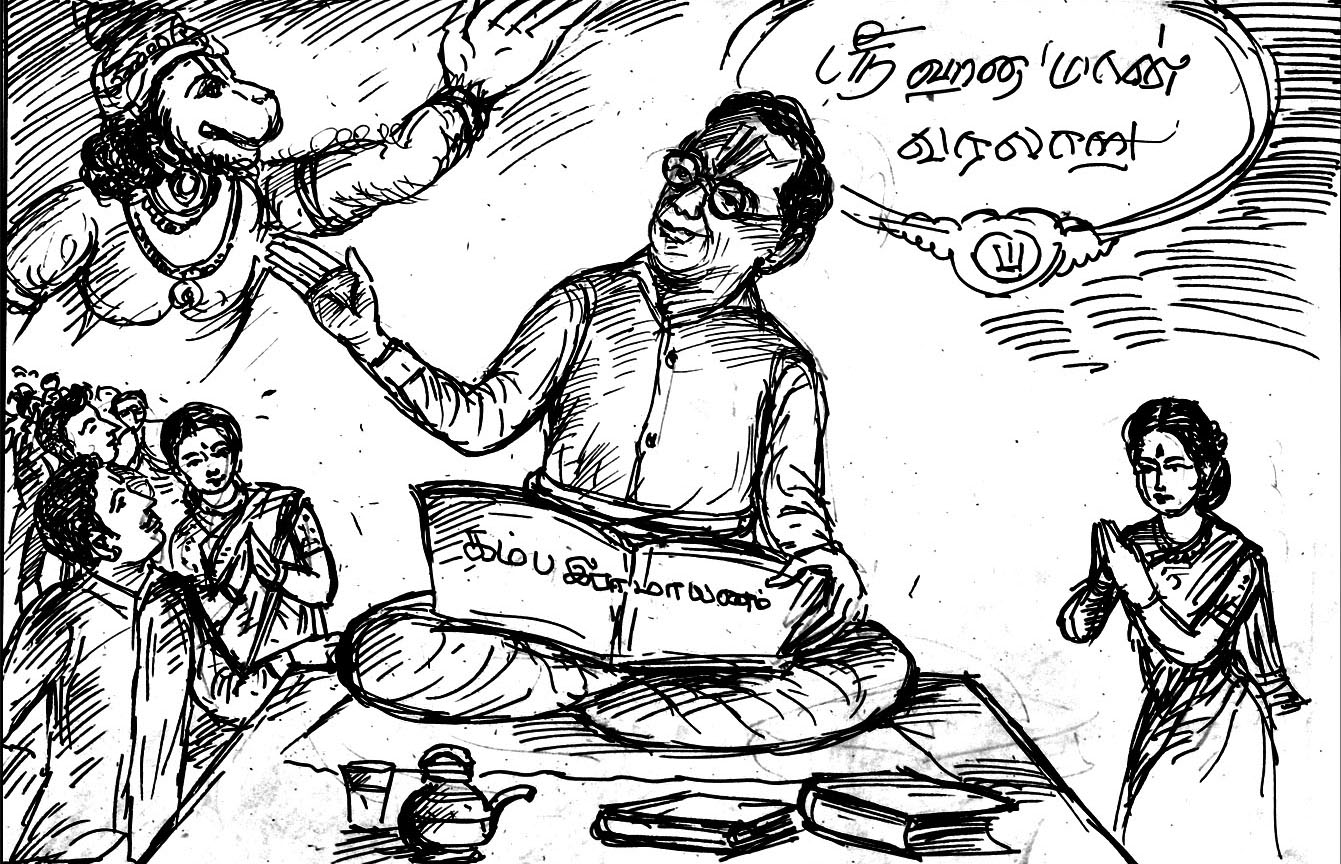 ஸ்ரீ ஹனுமான்
வரலாறு
கம்ப இராமாயணம்